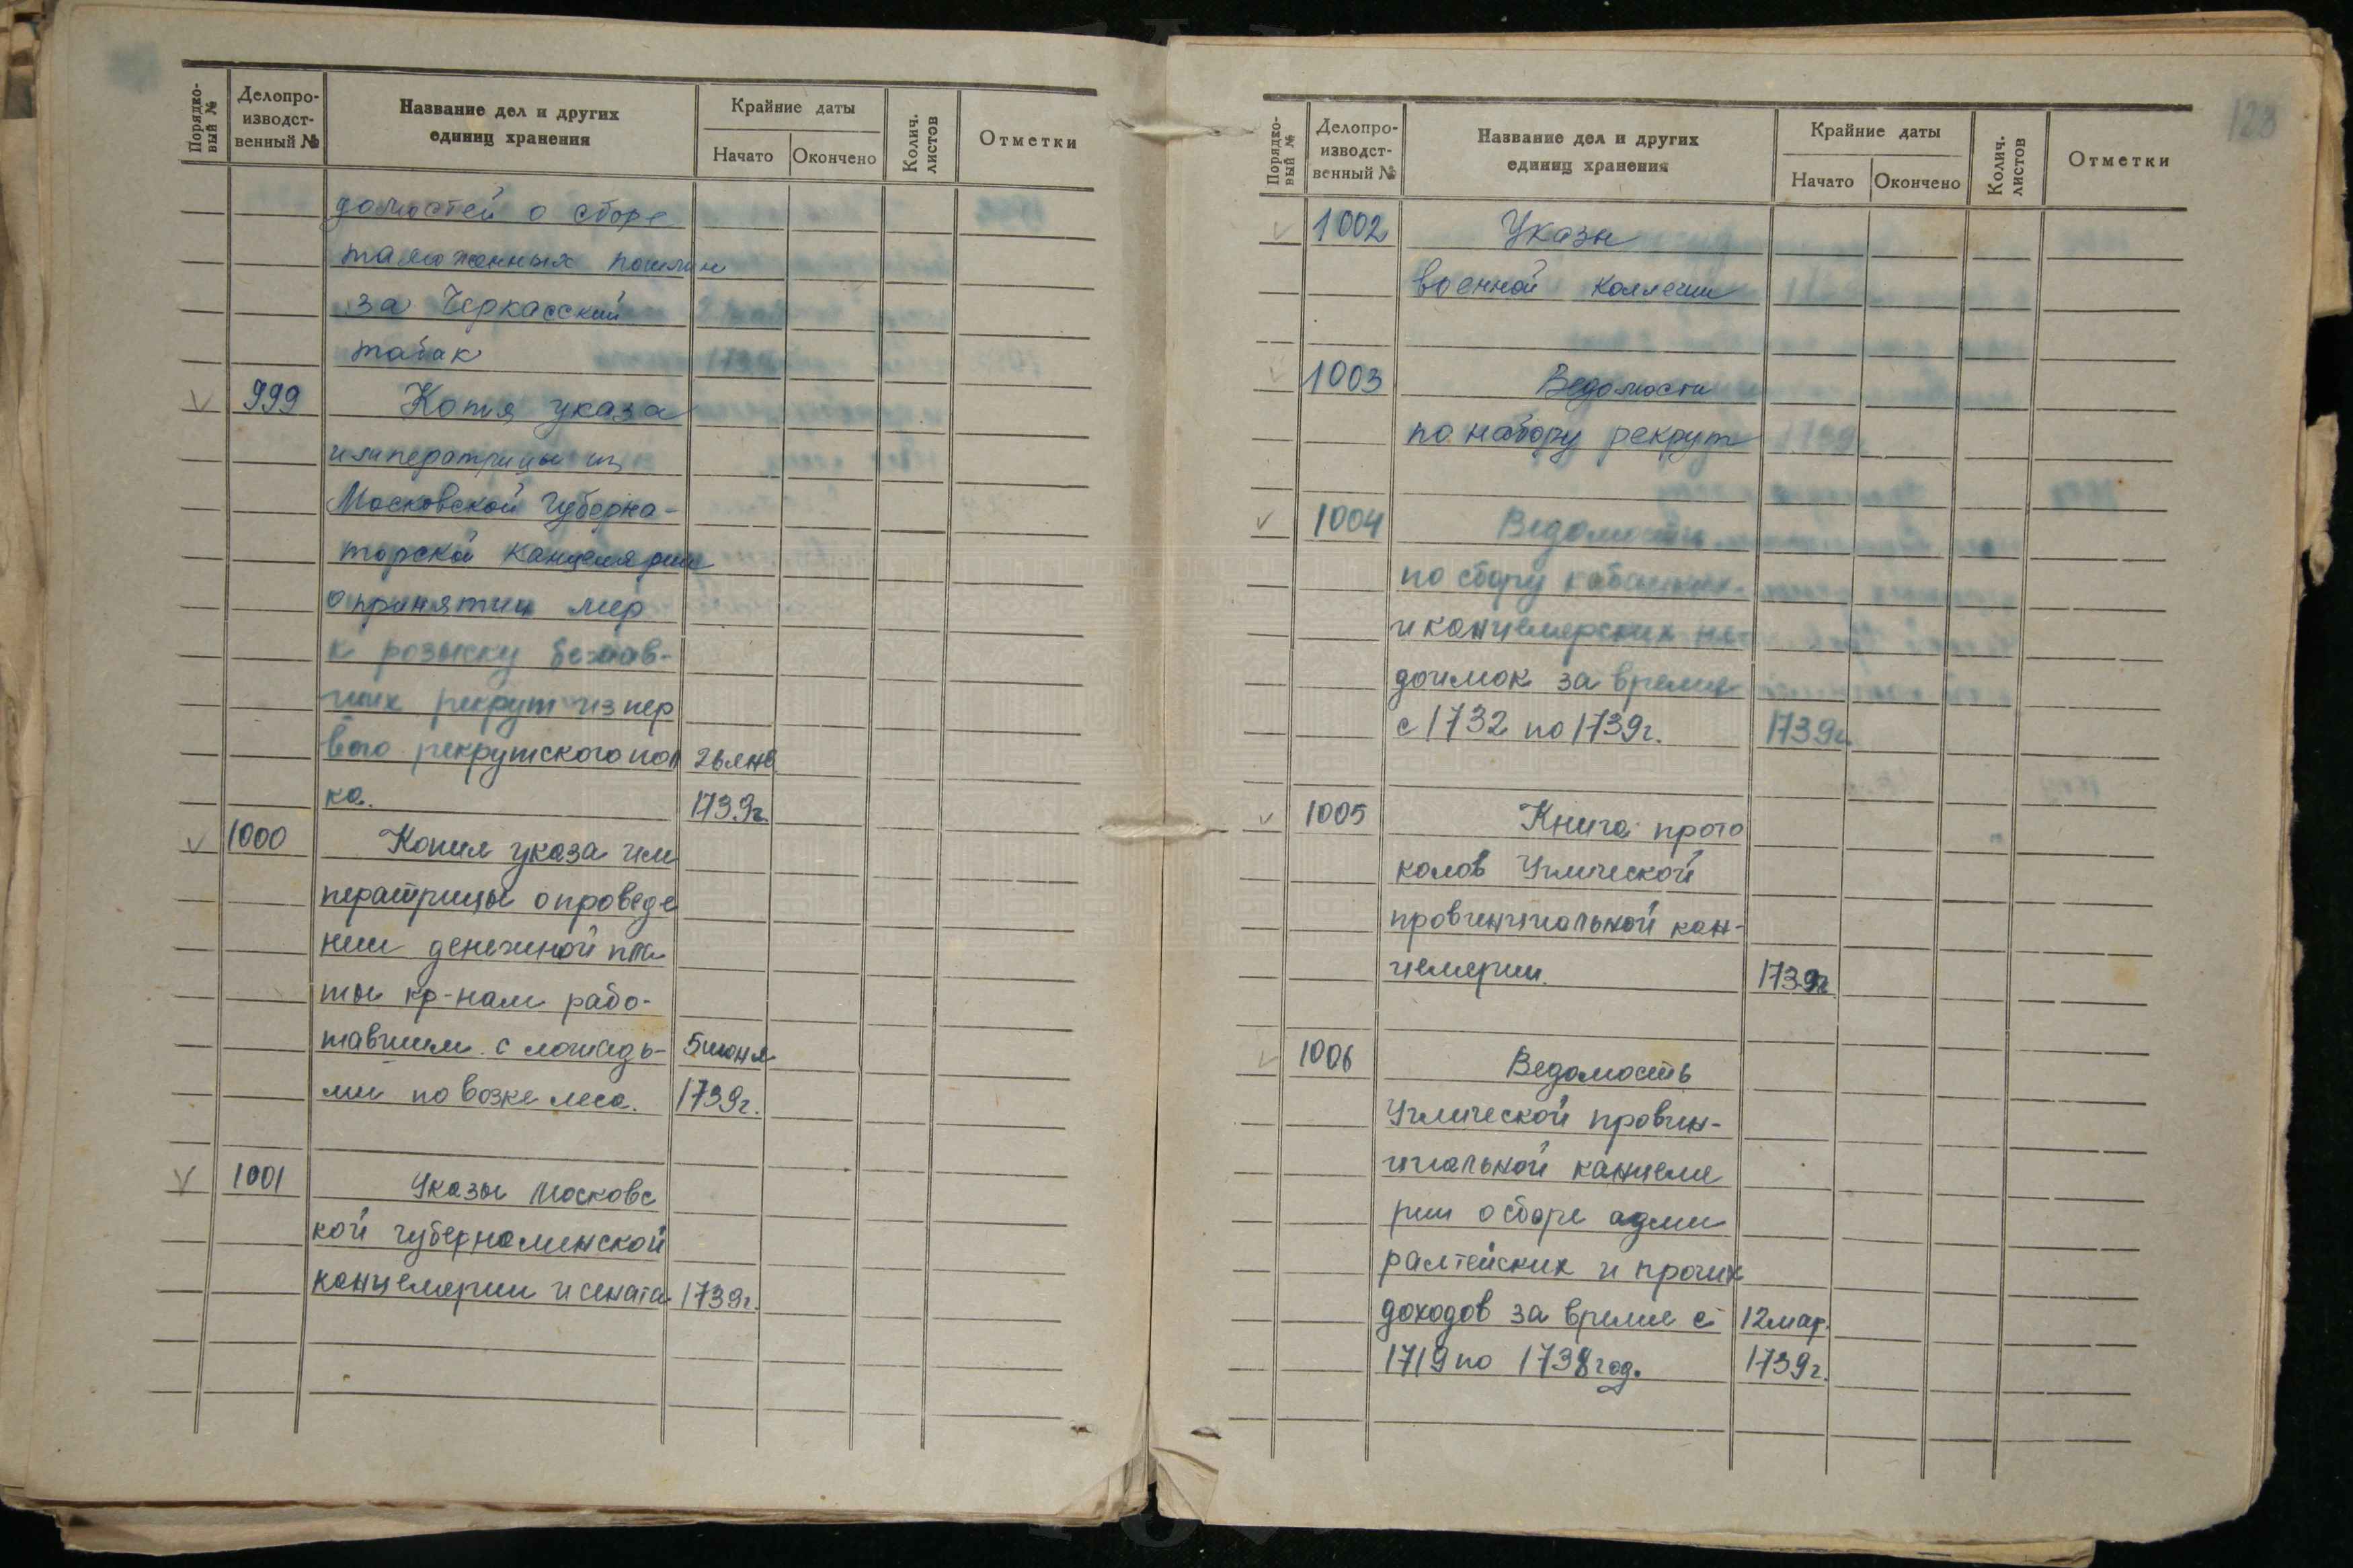 Порядко-
вый №
Делопро-
изводст-
венный №
Название дел и других
единиц хранения
Крайние даты
Начато
Окончено
Колич.
листов
Отметки
домостей о сборе
таможенных пошлин
за Черкасский
табак
999 Копия указа
императрицы из
Московской Губерна-
торской канцелярии
о принятии мер
к розыску бежав-
ших рекрут из пер
вого рекрутского пол 26 янв
ка. 1739г.
1000 Копия указа им
ператрицы о проведе
нии денежной пла
ты кр-нам рабо-
тавшим с лошадь- 5 июня
ми по возке леса. 1739г.
1001 Указы Московс
кой губерноминской
канцелярии и сената 1739г.
123
Порядко-
вый №
Делопро-
изводст-
венный №
Название дел и других
единиц хранения
Крайние даты
Начато
Окончено
Колич.
листов
Отметки
1002 Указы
военной коллегии
1003 Ведомости
по набору рекрут
1004 Ведомость
по сбору кабацких
и канцелярских не-
доимок за время
с 1732 по 1739г. 1739г.
1005 Книга прото
колов Угличской
провинциальной кан-
целярии. 1739г.
1006 Ведомость
Угличской провин-
циальной канцеля
рии о сборе адми
ралтейских и прочих
доходов за время с 12 мар.
1719 по 1738 год. 1739г.